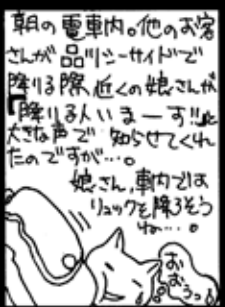 朝の電車内。他のお客
さんが品川シーサイドで
降りる際、近くの娘さんが
『降りる人いまーす!!』と
大きな声で知らせてくれ
たのですが…。
娘さん、車内では
リュックを降ろそう
ね…。
おおうっ